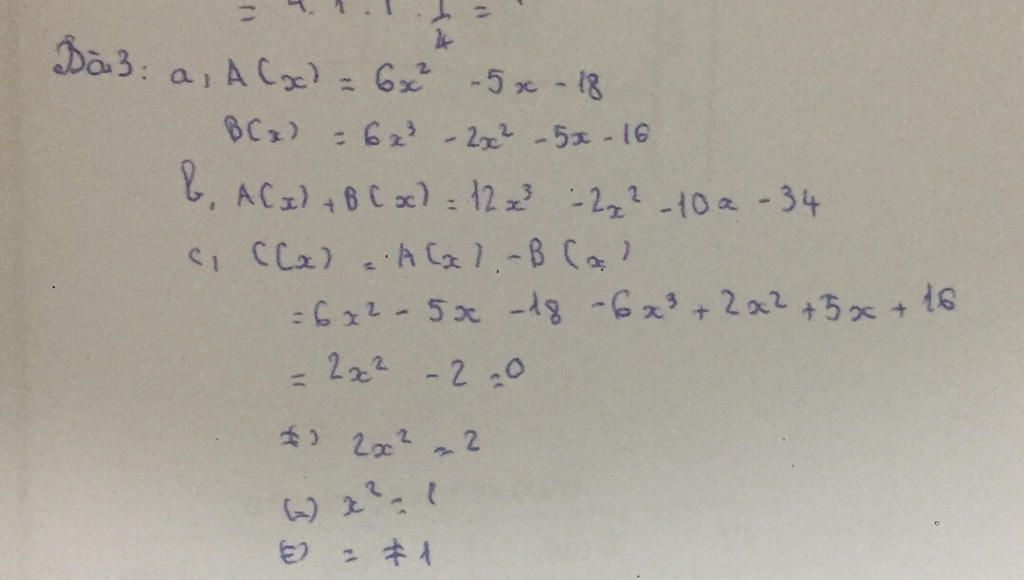 = 4. 1. 1. 1/4 =
Bài 3: a, A(x) = 6x² - 5x - 18
B(x) = 6x³ - 2x² - 5x - 16
b, A(x) + B(x) = 12x³ - 2x² - 10x - 34
c, C(x) = A(x) - B(x)
= 6x² - 5x - 18 - 6x³ + 2x² + 5x + 16
= 2x² - 2 = 0
2x² = 2
(=) x² = 1
= ±1